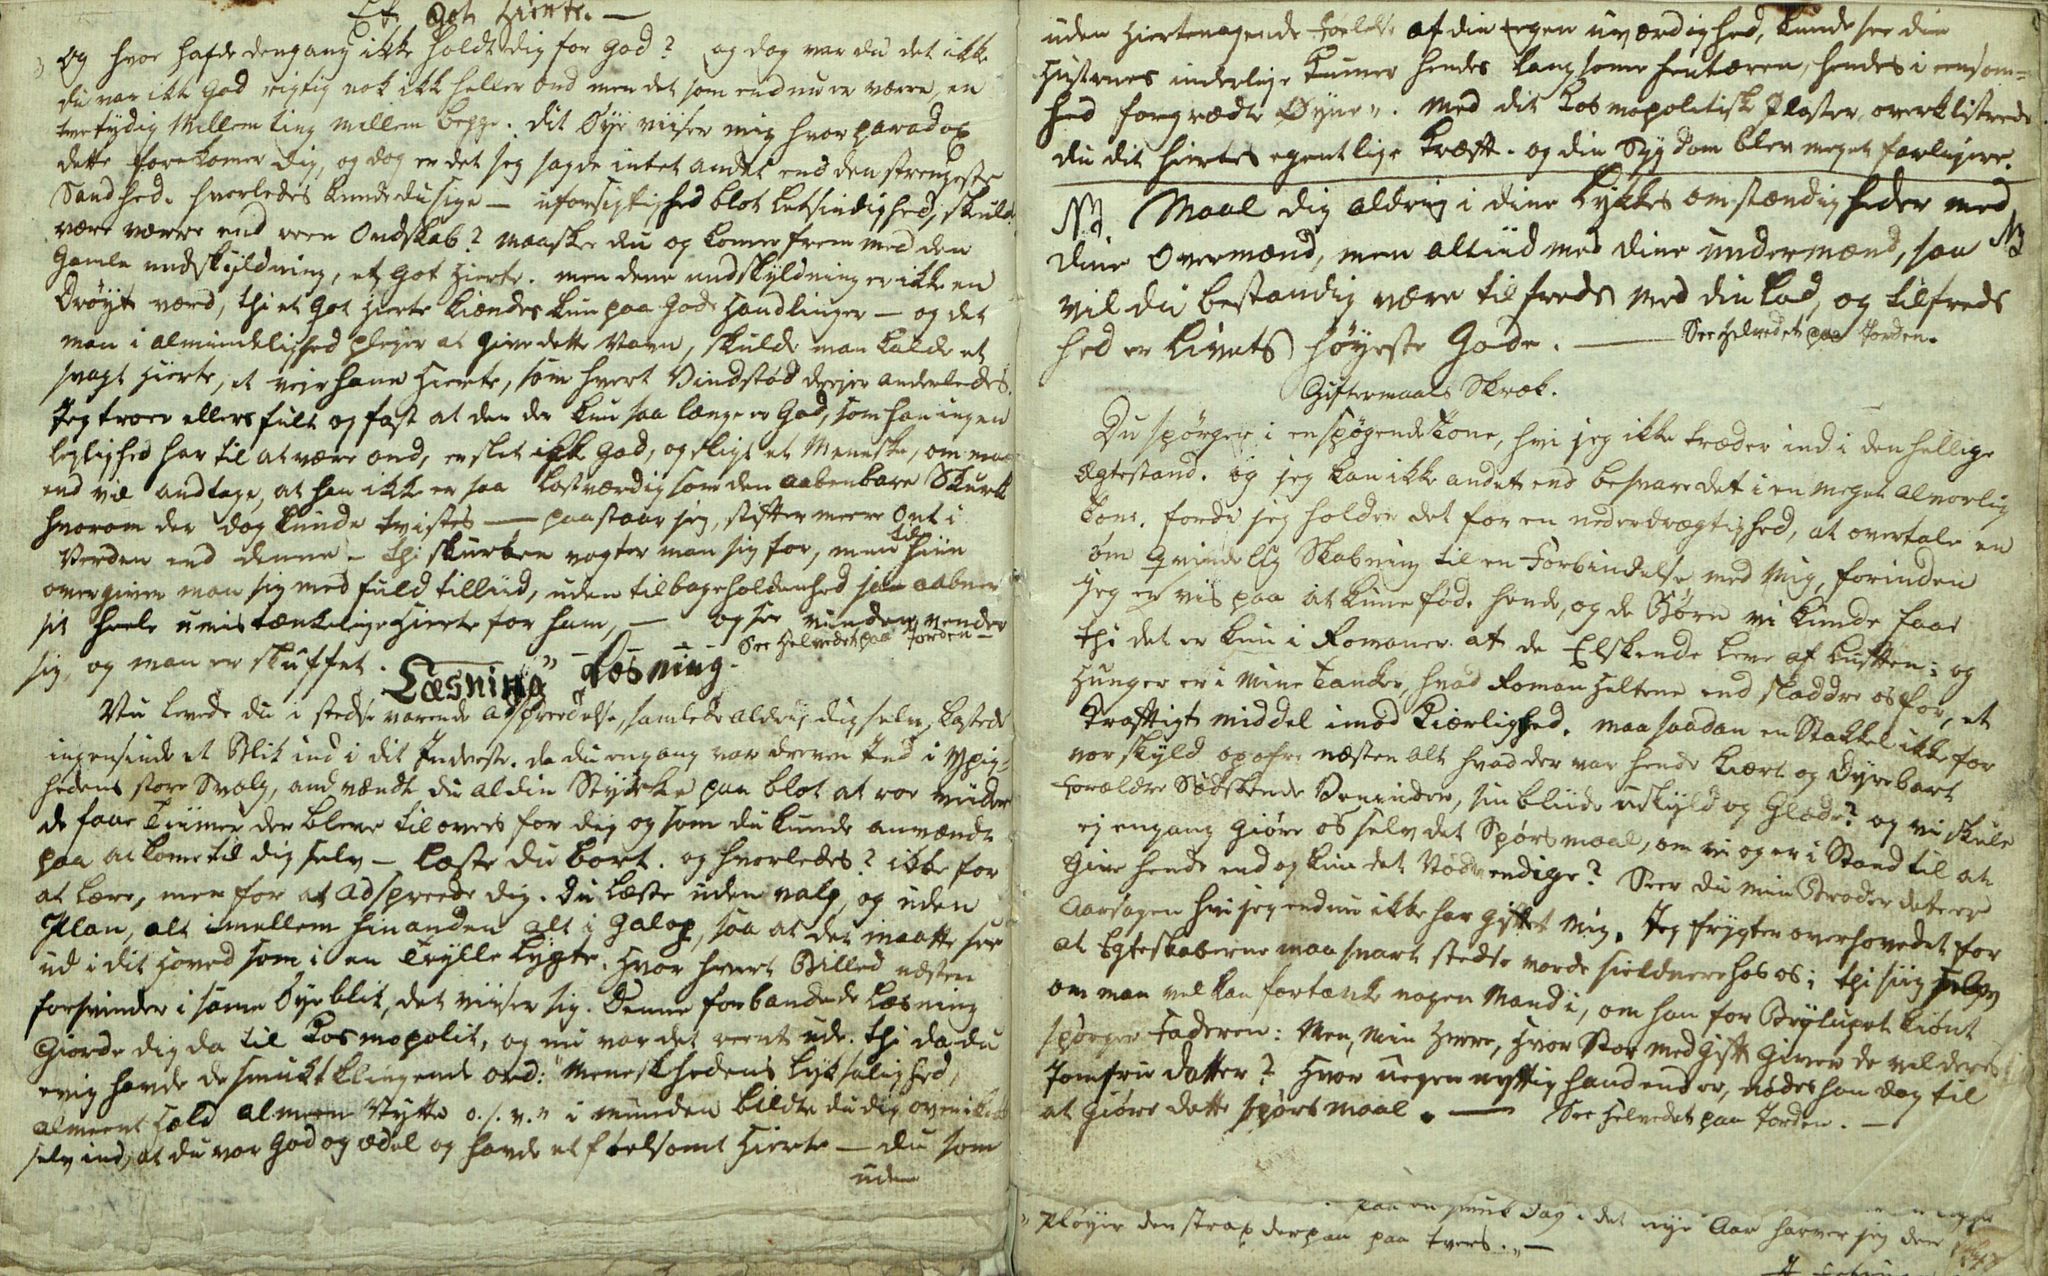 Et Got Hierte. —
Og hvor hafde dengang ikke holdt dig for God? og dog var du det ikke
du var ikke God rigtig nok ikke heller ond men det som endnu er værre, en
tvetydig Millem ting millem begge. Dit Øye viiser mig hvor paradox
dette forekomer dig, og dog er det jeg sagde intet andet end den strengeste
Sandhed. hvorledes kunde du sige — uforsigtighed blot Letsindighed, skulde
være værre end reen Ondskab? maaskee du og komer frem med den
Gamle undskyldning, et got Hierte. men denne undskyldning er ikke en
Drøyt værd, thi et Got Hierte kiendes kun paa Gode Handlinger — og det
man i almindelighed pleyer at give dette Navn, skulde man kalde et
svagt Hierte, et veyrhane Hierte, som hvert Vindstød dreyer anderledes.
Jeg troer ellers fult og fast at den der kun saa længe er God, som han ingen
leylighed har til at være ond, er slet ikke God, og sligt et Meneske, om man
end vil andtage, at han ikke er saa Lastværdig som den aabenbare Skurk
hvorom der dog kunde tvistes — paastaar jeg, stifter meere Ont i
Verden end denne — thi skurken vogter man sig for, men til hiin
overgiver man sig med fuld tilliid, uden tilbageholdenhed aabner
sit heele umistænkelige Hierte for ham, — og see vinden vender
sig, og man er skuffet. See Helvedet paa Jorden —
Læsning " Læsning.
Nu levede du i stedse varende adspreedelse, samlede aldrig dig selv, kastede
ingensinde et Blik ind i dit Inderste. da du engang var dreven Ind i Yppig-
hedens store Svælg, andvændte du al din Styrke paa blot at roe videre
de faae Tiimer der bleve tilovers for dig og som du kunde anvændt
paa at kome til dig selv — læste du bort. og hvorledes? ikke for
at lære, men for at adspreede dig. Du læste uden valg, og uden
Plan, alt imellem hinanden alt i Galop, saa at det maatte see
ud i dit Hoved som i en Trylle Lygte, hvor hvert Billed næsten
forsvinder i same Øyeblik, det viiser sig. Denne forbandede Læsning
Giorde dig da til Kosmopolit, og nu var det reent ude. thi da du
evig havde de smukt klingende ord: "Meneskhedens lyksalighed,
almeent Held almeen Nytte o.s.v." i munden bildte du dig
selv ind, at du var God og ædel og havde et følsomt Hierte — du som
uden
uden Hiertenagende Følelse af din egen uværdighed, kunde see din
Hustrues inderlige Kumer hendes langsome hentæren, hendes i eensom-
hed forgrædte Øyne". Med dit Kosmopolitiske Plaster overklistrede
du dit hiertes egentlige Kræft. og din Sygdom blev meget farligere.
NB Maal dig aldrig i dine Lykkes omstændigheder med
dine Overmænd, men altiid med dine undermænd, saa NB
vil du bestandig være tilfreds med din Lod, og tilfreds
hed er Livets høyeste Gode. — See Helvedet paa Jorden.
Giftermaals Skræk.
Du spørger i en spøgende Tone, hvi jeg ikke træder ind i den hellige
Ægtestand. og jeg kan ikke andet end besvare det i en meget alvorlig
Tone. fordi jeg holder det for en nederdrægtighed, at overtale en
øm qvindelig Skabning til en Forbindelse med Mig, forinden
jeg er vis paa at kune føde hende, og de Børn vi kunde faae
thi det er kun i Romaner at de Elskende leve af Luften; og
Hunger er i Mine Tanker, hvad Roman Heltene end sladdre os for, et
kraftigt middel imod Kiærlighed. maa saadan en Stakkel ikke for
vor skyld opofre næsten alt hvad der var hende kiært og Dyrebart
Forældre Sødskende Veninder, sin bliide uskyld og Glæde? og vi skule
ej engang giøre os selv det Spørsmaal, om vi og er i Stand til at
Give hende end og kun det Nødvendige? Seer du min Broder dette er
aarsagen hvi jeg endnu ikke har giftet mig. Jeg frygter overhovedet for
at Egteskaberne maa snart stedse vorde sieldnere hos os; thi siig selv
om man vel kan fortænke nogen Mand i, om han for Brylupet kiønt
spørger Faderen: Men, Min Herre, hvor Stor medgift Giver de vel deres
Jomfrue datter? Hvor uegennyttig hand end er, nødes han dog til
at Giøre dette spørsmaal. — See Helvedet paa Jorden. —
paa en smuk Dag i det nye Aar harver jeg den
" Pløyer den strax derpaa paa tvers." —